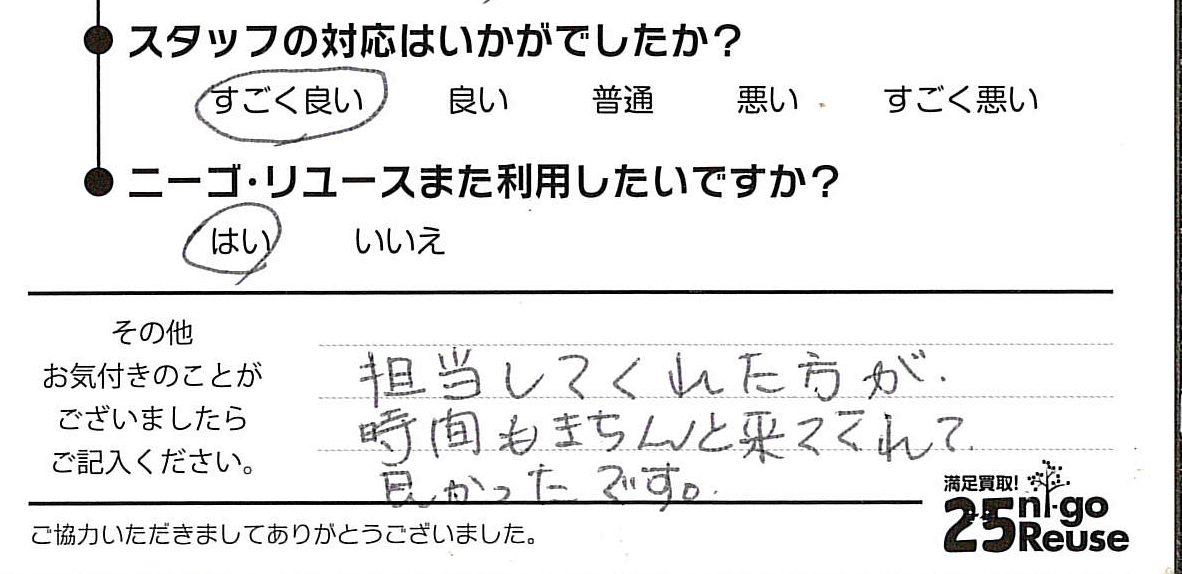 スタッフの対応はいかがでしたか?
すごく良い 良い 普通 悪い すごく悪い
ニーゴ・リユースまた利用したいですか?
はい いいえ
その他
お気付きのことが
ございましたら
ご記入ください。
担当してくれた方が、
時間もきちんと来てくれて、
良かったです。
満足買取!
25 ni-go
Reuse
ご協力いただきましてありがとうございました。